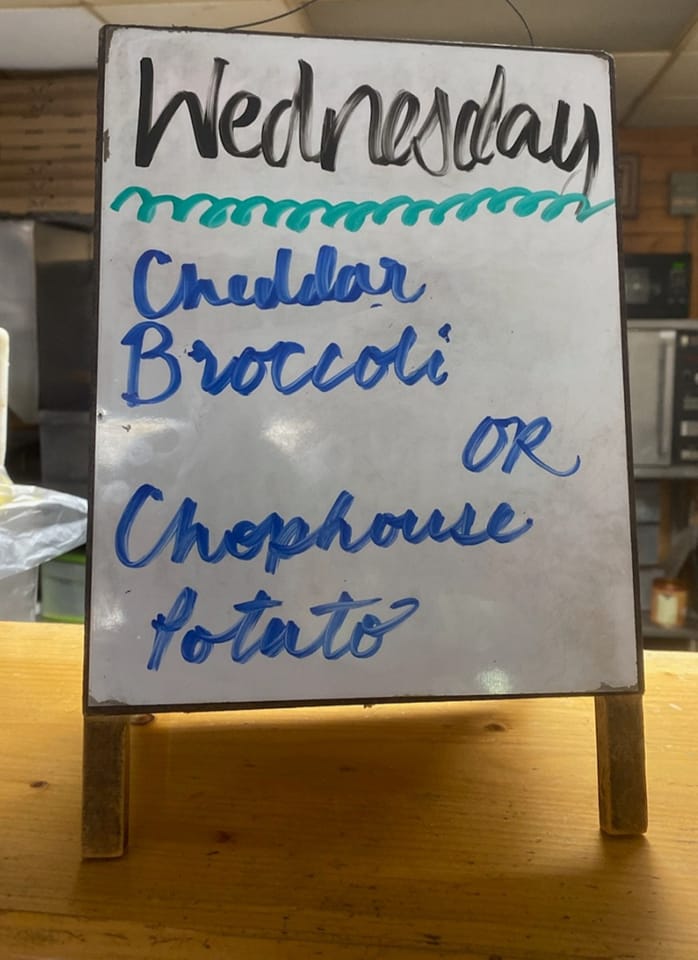 Wednesday
Cheddar
Broccoli
OR
Chophouse
Potato